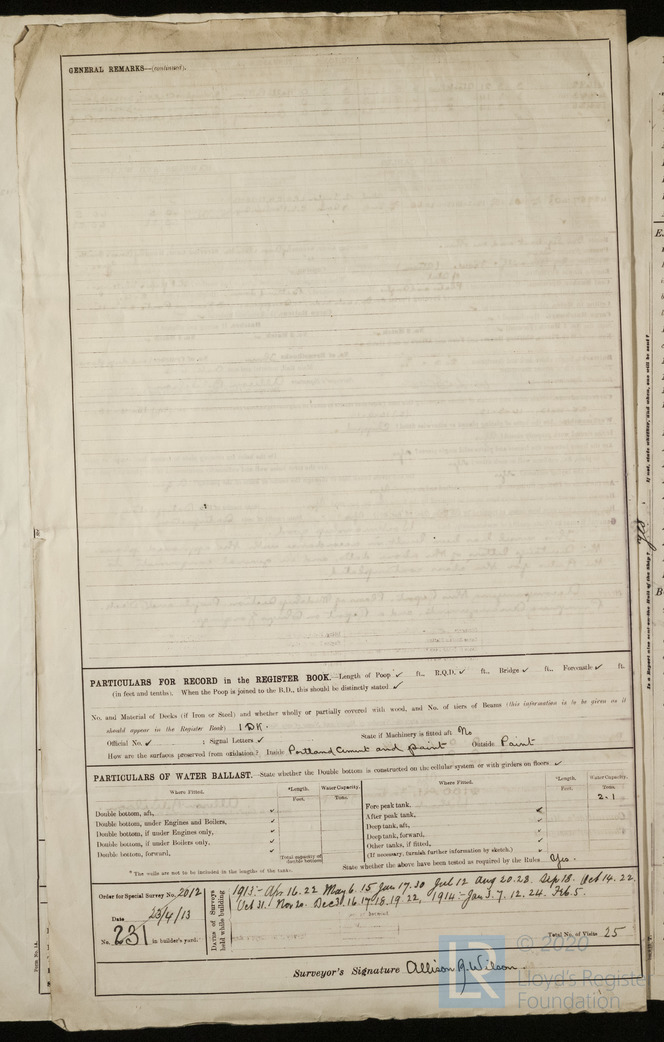 GENERAL REMARKS—(continued).
PARTICULARS FOR RECORD in the REGISTER BOOK.—Length of Poop ✓ ft., R.Q.D. ✓ ft., Bridge ✓ ft., Forecastle ✓ ft.
(in feet and tenths). When the Poop is joined to the B.D., this should be distinctly stated ✓
No. and Material of Decks (if Iron or Steel) and whether wholly or partially covered with wood, and No. of tiers of Beams (this information is to be given as it
should appear in the Register Book) 1 DK.
Official No. ✓ ; Signal Letters ✓ State if Machinery is fitted aft No
How are the surfaces preserved from oxidation? Inside Portland Cement and paint Outside Paint
PARTICULARS OF WATER BALLAST.—State whether the Double bottom is constructed on the cellular system or with girders on floors ✓
Where Fitted. *Length. Water Capacity. Where Fitted. *Length. Water Capacity.
Feet. Tons. Feet. Tons.
Double bottom, aft, ✓ Fore peak tank, 2.1
Double bottom, under Engines and Boilers, ✓ After peak tank, ✓
Double bottom, if under Engines only, ✓ Deep tank, aft, ✓
Double bottom, if under Boilers only, ✓ Deep tank, forward, ✓
Double bottom, forward, ✓ Other tanks, if fitted, ✓
Total capacity of double bottom (If necessary, furnish further information by sketch.)
* The wells are not to be included in the lengths of the tanks. State whether the above have been tested as required by the Rules Yes.
Order for Special Survey No. 2012
Date 23/4/13
No. 231 in builder's yard.
Dates of Surveys held while building
1913:- Apr. 16. 22 May 6. 15 Jun 17. 30 Jul 12 Aug 20. 28. Sep 18. Oct 14. 22.
Oct 31. Nov 20. Dec 3. 16. 17. 18. 19. 22, 1914:- Jan 3. 7. 12. 24. Feb. 5.
Total No. of Visits 25
Surveyor's Signature Allison R. Wilson.
Form No. 1A.
If not, state whether, and when, one will be sent?
Is a Report also sent on the Hull of the Ship?
yes
LR
© 2020
Lloyd's Register
Foundation